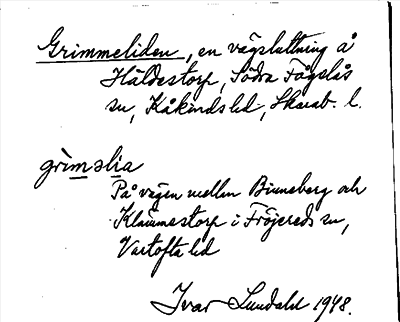 Grimmeliden, en vägsluttning å
Håldestorp, Södra Fågelås
sn, Kåkinds hd, Skarab. l.
grìməlia
På vägen mellan Binneberg och
Klämmestorp i Fröjereds sn,
Vartofta hd
Ivar Lundahl 1948.